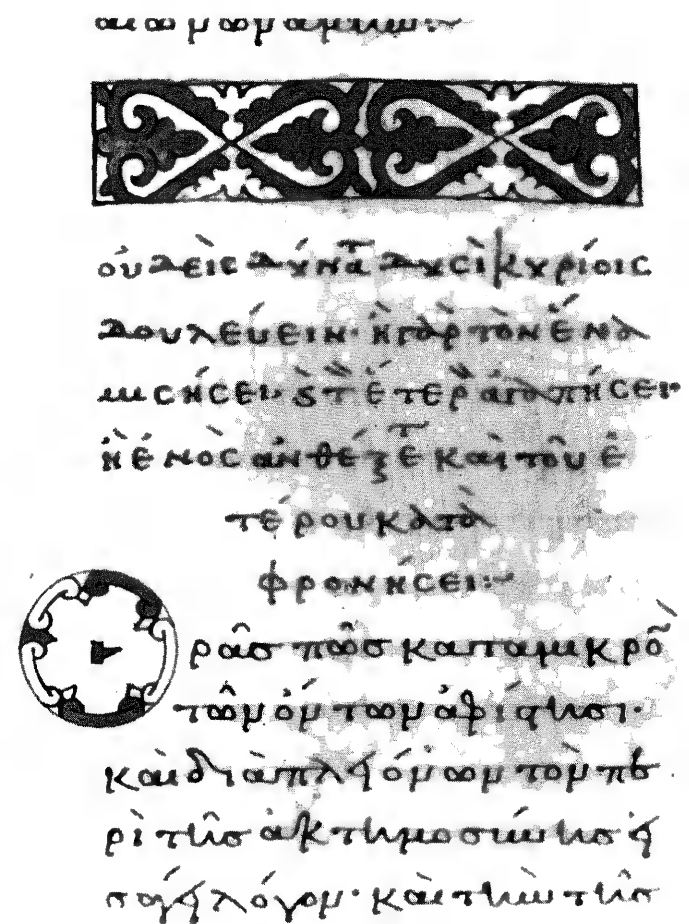 αιώνων ἀμήν:~
οὐδεὶς δύναᵀ δυσὶ κυρίοις
δουλεύειν· ἢ γὰρ τὸν ἕνα
μισήσει· ϗ τ̀ ἕτερ̀ ἀγαπήσει·
ἢ ἑνὸς ἀνθέξεᵀ καὶ τοῦ ἑ
τέρου κατα
φρονήσει:~
Ὁρᾶσ πῶσ κατα μικρὸ̅
τῶν ὄντων ἀφίστησι·
καὶ διὰ πλειόνων τὸν πε
ρὶ τῆσ ἀκτημοσύνησ εἰ
σάγει λόγον· καὶ τὴν τῆσ